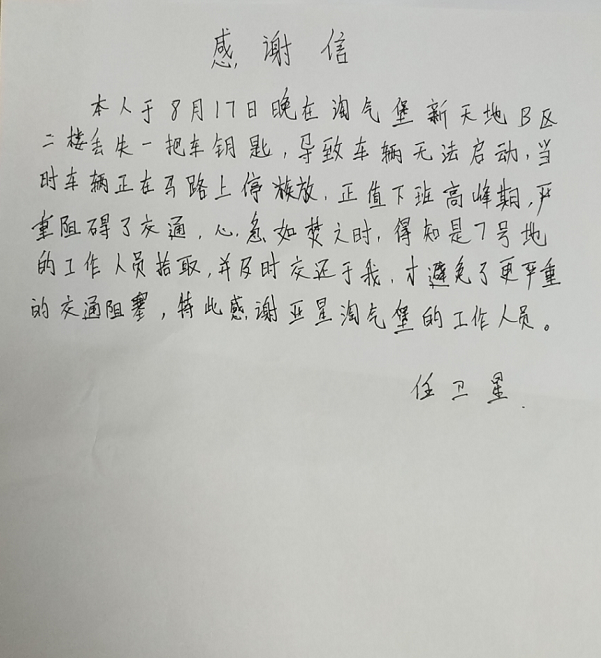 感谢信
本人于8月17日晚在淘气堡新天地B区
二楼丢失一把车钥匙,导致车辆无法启动,当
时车辆正在马路上停放.正值下班高峰期,严
重阻碍了交通,心急如焚之时,得知是7号地
的工作人员拾取,并及时交还于我,才避免了更严重
的交通阻塞,特此感谢亚星淘气堡的工作人员。
任卫星.